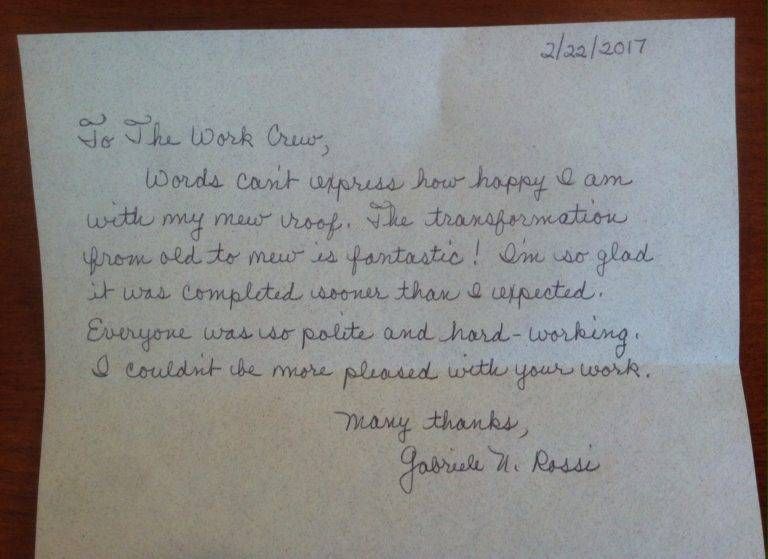 2/22/2017
To The Work Crew,
Words can't express how happy I am
with my new roof. The transformation
from old to new is fantastic! I'm so glad
it was completed sooner than I expected.
Everyone was so polite and hard-working.
I couldn't be more pleased with your work.
Many thanks,
Gabriele N. Rossi